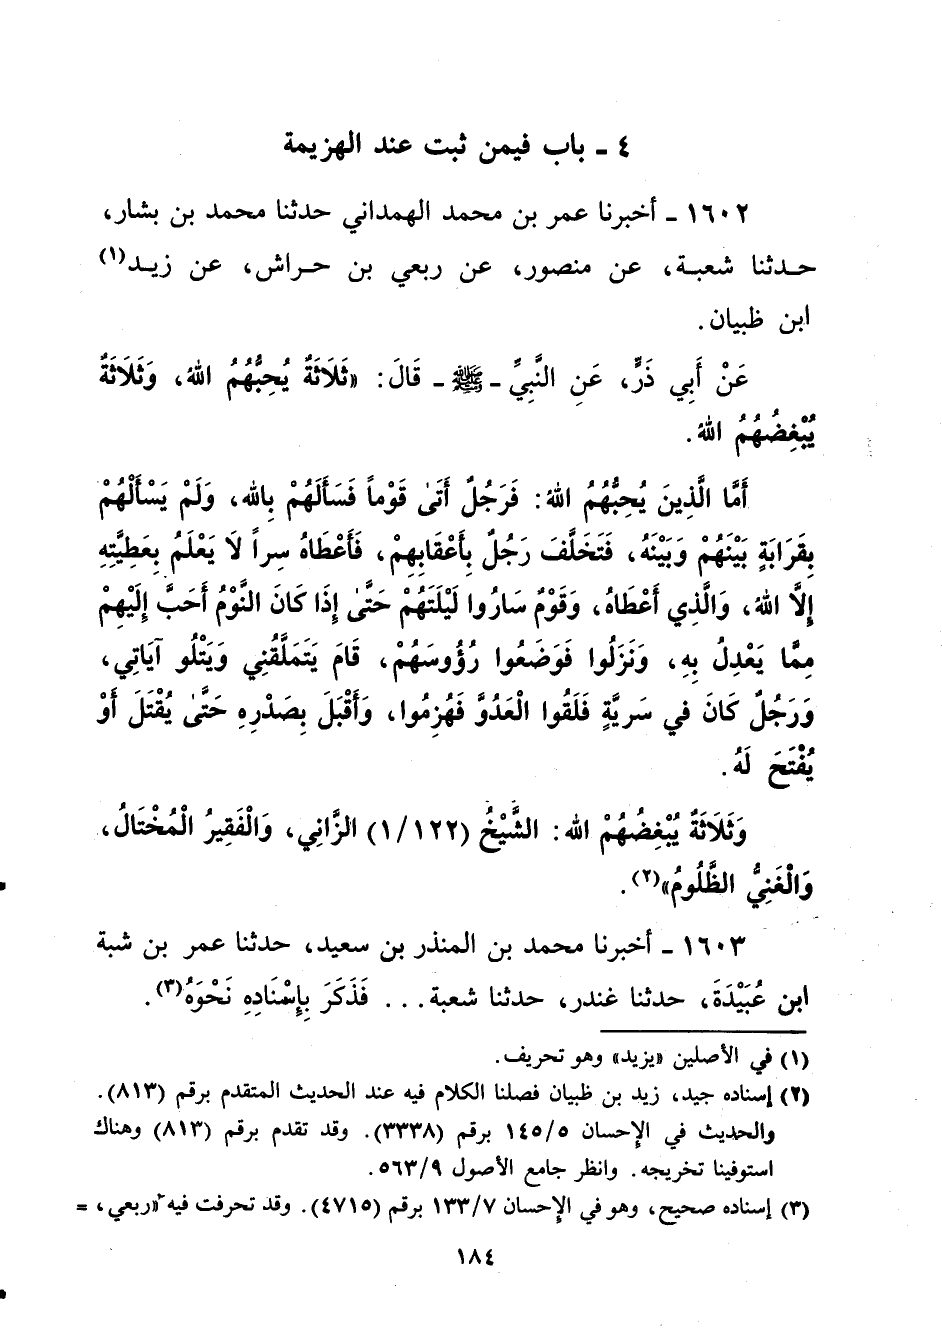 ٤ - باب فيمن ثبت عند الهزيمة
١٦٠٢ - أخبرنا عمر بن محمد الهمداني حدثنا محمد بن بشار،
حدثنا شعبة، عن منصور، عن ربعي بن حراش، عن زيد(١)
ابن ظبيان.
عَنْ أَبِي ذَرٍّ، عَنِ النَّبِيِّ - ﷺ - قَالَ: «ثَلَاثَةٌ يُحِبُّهُمُ اللهُ، وَثَلَاثَةٌ
يُبْغِضُهُمُ اللهُ.
أَمَّا الَّذِينَ يُحِبُّهُمُ اللهُ: فَرَجُلٌ أَتَىٰ قَوْماً فَسَأَلَهُمْ بِاللهِ، وَلَمْ يَسْأَلْهُمْ
بِقَرَابَةٍ بَيْنَهُمْ وَبَيْنَهُ، فَتَخَلَّفَ رَجُلٌ بِأَعْقَابِهِمْ، فَأَعْطَاهُ سِراً لَا يَعْلَمُ بِعَطِيَّتِهِ
إِلَّا اللهُ، وَالَّذِي أَعْطَاهُ، وَقَوْمٌ سَارُوا لَيْلَتَهُمْ حَتَّىٰ إِذَا كَانَ النَّوْمُ أَحَبَّ إِلَيْهِمْ
مِمَّا يَعْدِلُ بِهِ، وَنَزَلُوا فَوَضَعُوا رُؤُوسَهُمْ، قَامَ يَتَمَلَّقُنِي وَيَتْلُو آيَاتِي،
وَرَجُلٌ كَانَ فِي سَرِيَّةٍ فَلَقُوا الْعَدُوَّ فَهُزِمُوا، وَأَقْبَلَ بِصَدْرِهِ حَتَّىٰ يُقْتَلَ أَوْ
يُفْتَحَ لَهُ.
وَثَلَاثَةٌ يُبْغِضُهُمْ الله: الشَّيْخُ (١/١٢٢) الزَّانِي، وَالْفَقِيرُ الْمُخْتَالُ،
وَالْغَنِيُّ الظَّلُومُ»(٢).
١٦٠٣ - أخبرنا محمد بن المنذر بن سعيد، حدثنا عمر بن شبة
ابن عُبَيْدَةَ، حدثنا غندر، حدثنا شعبة... فَذَكَرَ بِإِسْنَادِهِ نَحْوَهُ(٣).
(١) في الأصلين «يزيد» وهو تحريف.
(٢) إسناده جيد، زيد بن ظبيان فصلنا الكلام فيه عند الحديث المتقدم برقم (٨١٣).
والحديث في الإحسان ١٤٥/٥ برقم (٣٣٣٨). وقد تقدم برقم (٨١٣) وهناك
استوفينا تخريجه. وانظر جامع الأصول ٥٦٣/٩.
(٣) إسناده صحيح، وهو في الإحسان ١٣٣/٧ برقم (٤٧١٥). وقد تحرفت فيه «ربعي، =
١٨٤